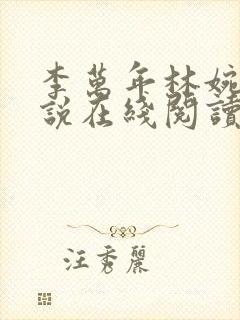 李萬年林婉
說在綫閱讀
汪秀麗